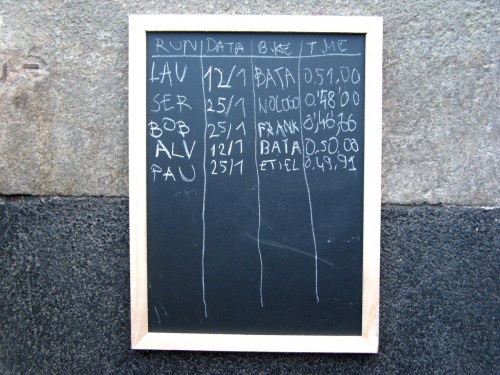 RUN DATA BIKE TIME
LAV 12/1 BATA 0.51,00
SER 25/1 NOLOGO 0'48'00
BOB 25/1 FRANK 0'46,66
ALV 12/1 BATA 0,50,00
PAU 25/1 ETIEL 0,49,91